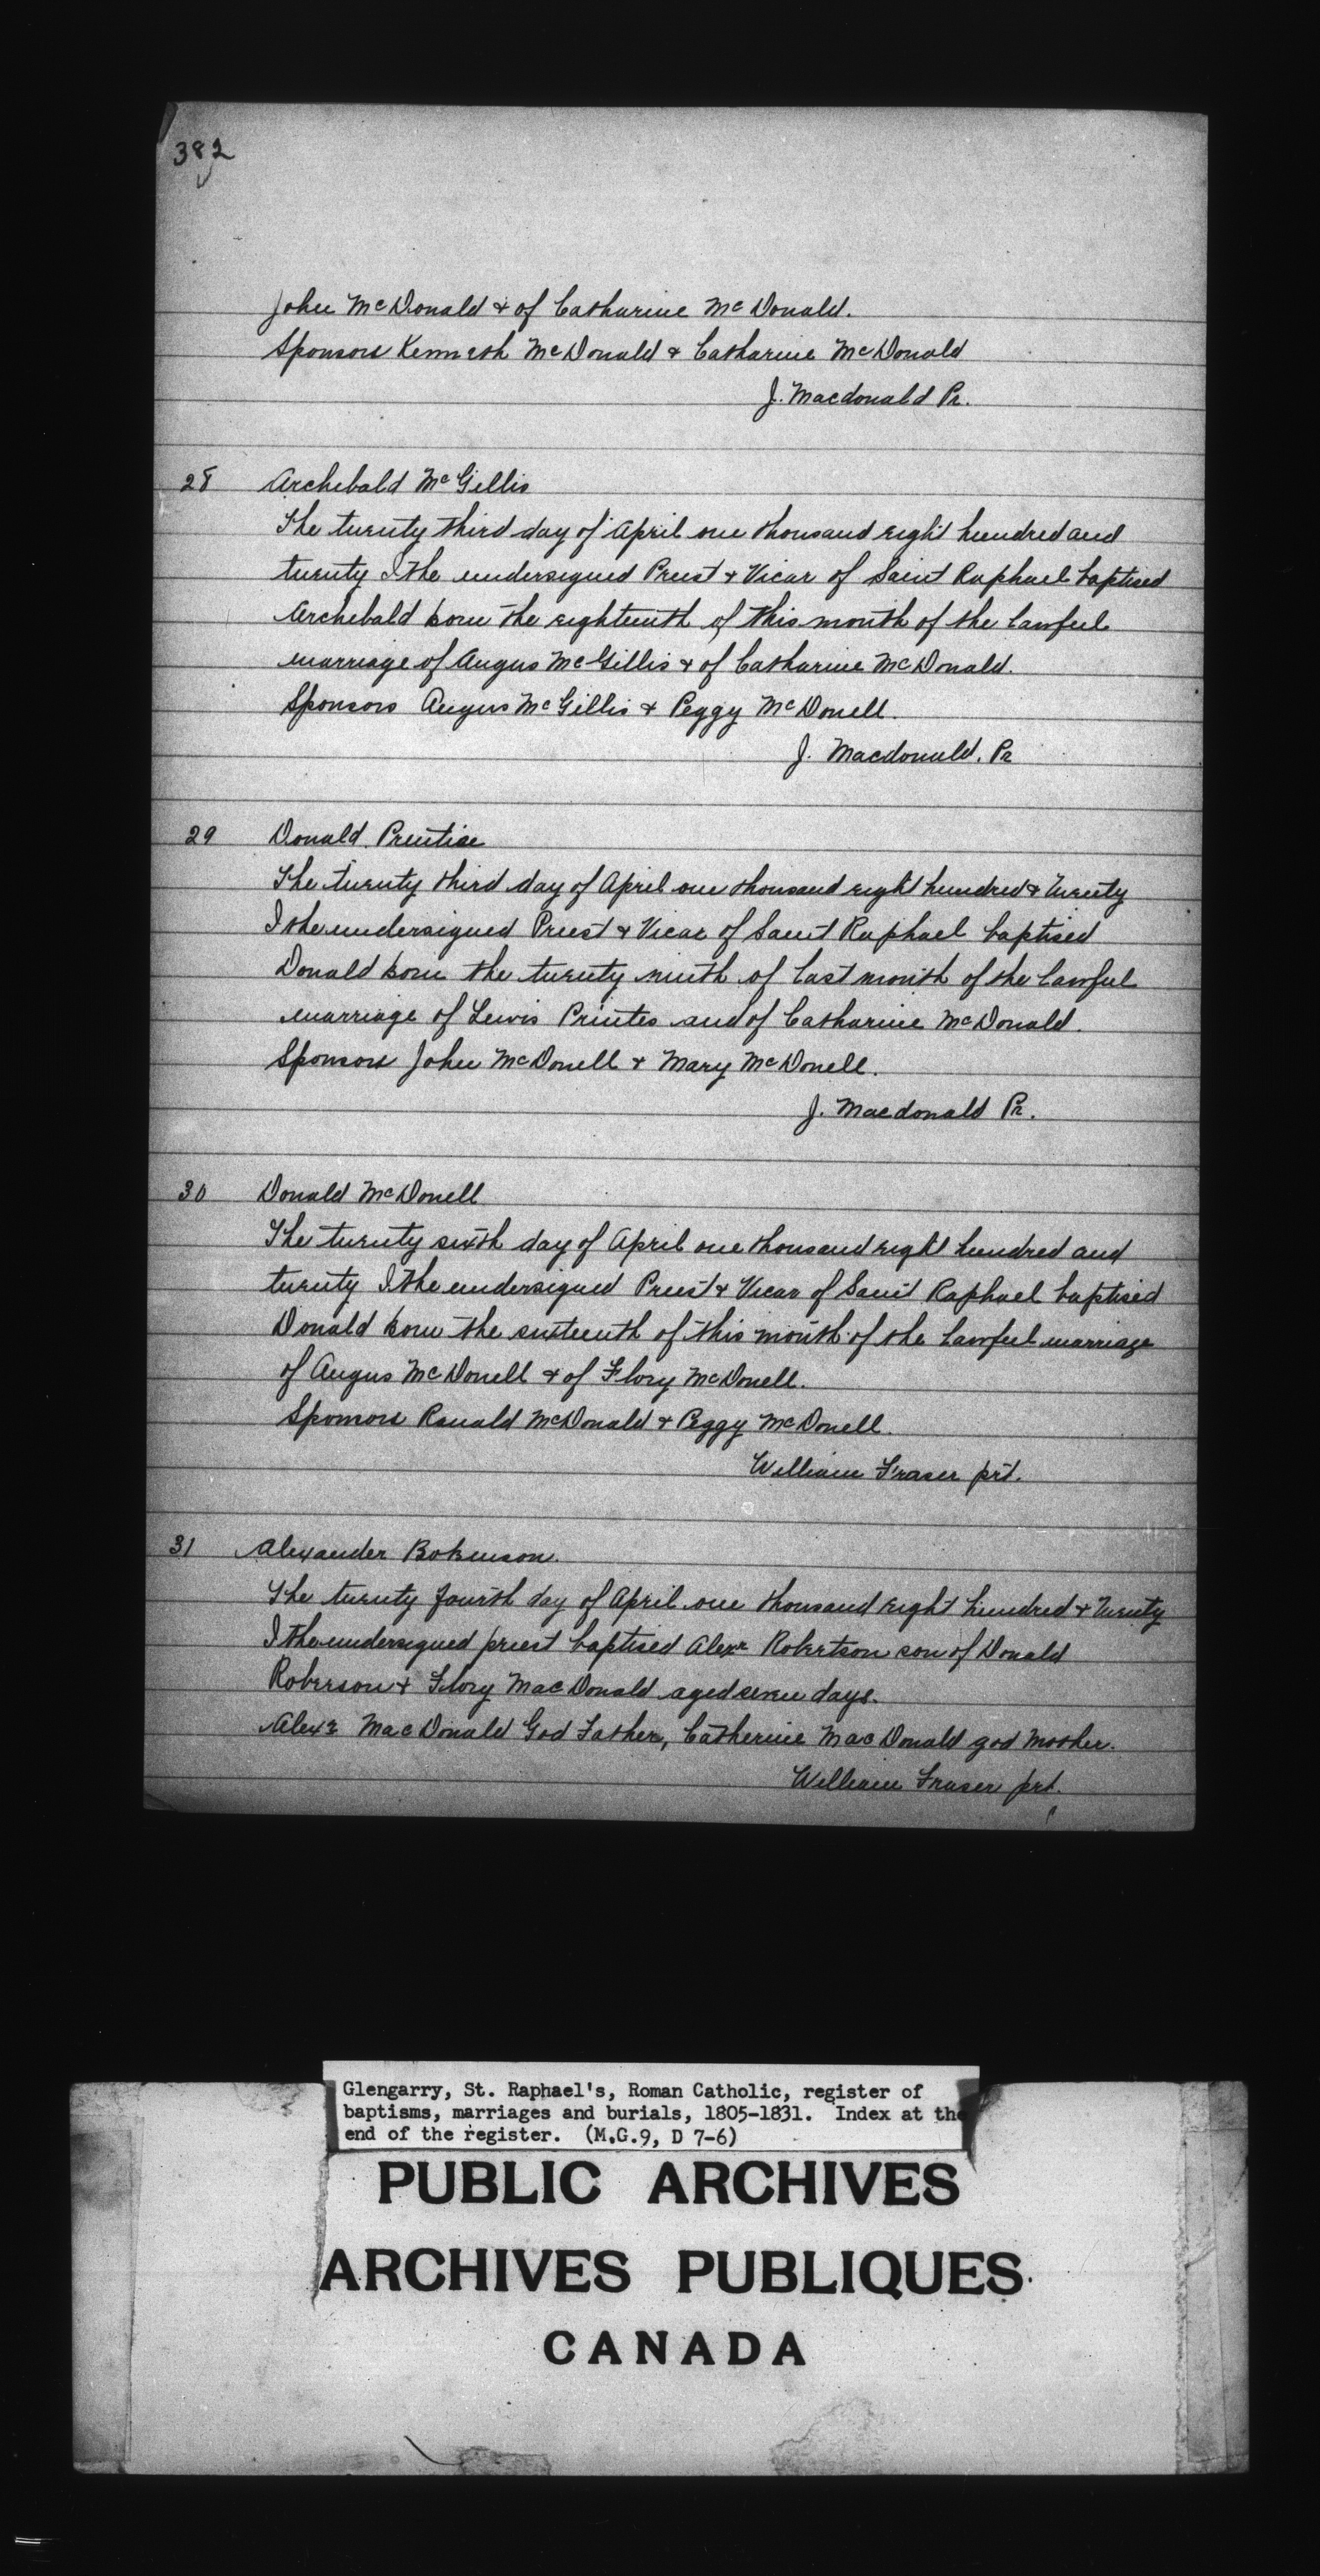 382
John McDonald & of Catharine McDonald.
Sponsors Kenneth McDonald & Catharine McDonald
J. Macdonald Pr.
28 Archebald McGillis
The twenty third day of April one thousand eight hundred and
twenty I the undersigned Preist & Vicar of Saint Raphael baptised
Archebald born the eighteenth of this month of the lawful
marriage of Angus McGillis & of Catharine McDonald.
Sponsors Angus McGillis & Peggy McDonell.
J. Macdonald. Pr
29 Donald Prentice
The twenty third day of April one thousand eight hundred & twenty
I the undersigned Preist & Vicar of Saint Raphael baptised
Donald born the twenty ninth of last month of the lawful
marriage of Lewis Printes and of Catharine McDonald.
Sponsors John McDonell & Mary McDonell.
J. Macdonald Pr.
30 Donald McDonell
The twenty sixth day of April one thousand eight hundred and
twenty I the undersigned Preist & Vicar of Saint Raphael baptised
Donald born the sixteenth of this month of the lawful marriage
of Angus McDonell & of Flory McDonell.
Sponsors Ranald McDonald & Peggy McDonell.
William Fraser prt.
31 Alexander
The twenty fourth day of April one thousand eight hundred & twenty
I the undersigned priest baptised Alexr Robertson son of Donald
Roberson & Flory MacDonald aged seven days.
Alexr MacDonald God Father, Catherine MacDonald god Mother.
William Fraser prt.
Glengarry, St. Raphael's, Roman Catholic, register of
baptisms, marriages and burials, 1805-1831. Index at the
end of the register. (M.G.9, D 7-6)
PUBLIC ARCHIVES
ARCHIVES PUBLIQUES
CANADA